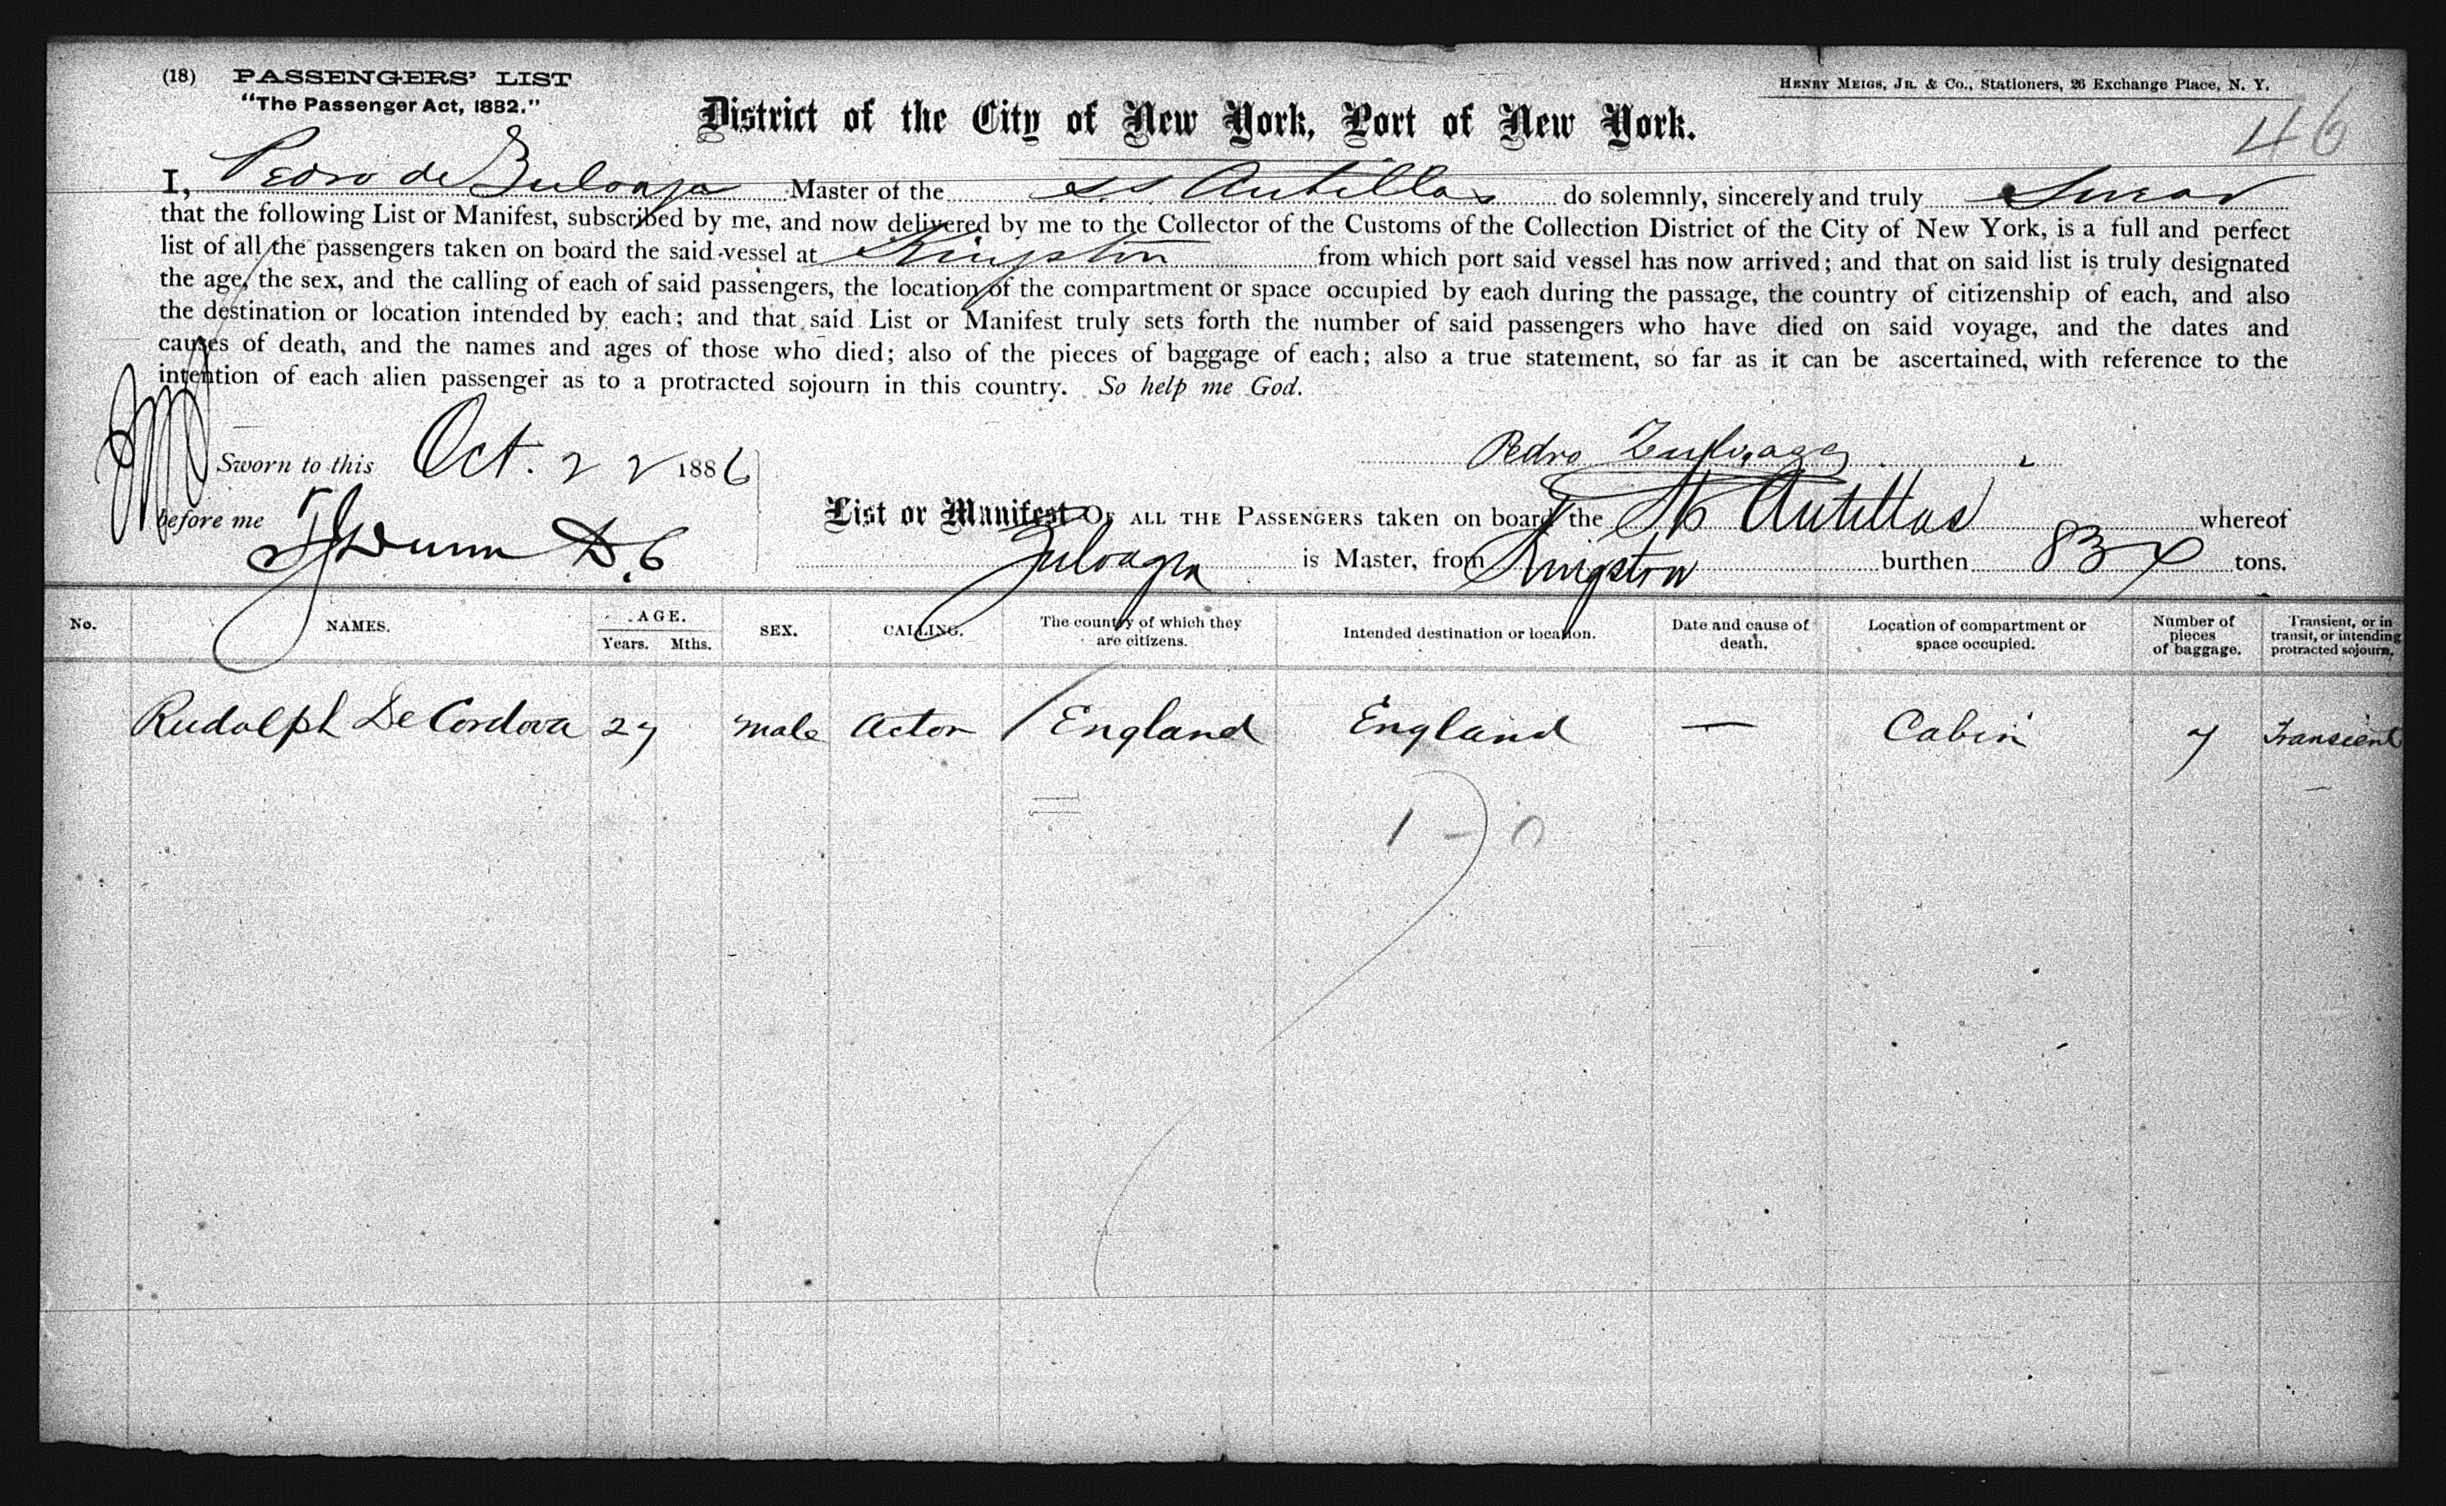 (18) PASSENGERS' LIST
"The Passenger Act, 1882."
HENRY MEIGS, JR. & CO., Stationers, 26 Exchange Place, N. Y.
District of the City of New York, Port of New York.
46
I, Pedro de Zuloaga Master of the S.S. Antillas do solemnly, sincerely and truly Swear
that the following List or Manifest, subscribed by me, and now delivered by me to the Collector of the Customs of the Collection District of the City of New York, is a full and perfect
list of all the passengers taken on board the said vessel at Kingston from which port said vessel has now arrived; and that on said list is truly designated
the age, the sex, and the calling of each of said passengers, the location of the compartment or space occupied by each during the passage, the country of citizenship of each, and also
the destination or location intended by each; and that said List or Manifest truly sets forth the number of said passengers who have died on said voyage, and the dates and
causes of death, and the names and ages of those who died; also of the pieces of baggage of each; also a true statement, so far as it can be ascertained, with reference to the
intention of each alien passenger as to a protracted sojourn in this country. So help me God.
Sworn to this Oct. 22 1886
Pedro Zuloaga
before me
Dunn D.C
List or Manifest OF ALL THE PASSENGERS taken on board the Antillas whereof
Zuloaga is Master, from Kingston burthen tons.
No. NAMES. AGE. Years. Mths. SEX. CALLING. The country of which they are citizens. Intended destination or location. Date and cause of death. Location of compartment or space occupied. Number of pieces of baggage. Transient, or in transit, or intending protracted sojourn.
Rudolph De Cordova 27 Male Actor England England — Cabin 7 Transient
1 - 0